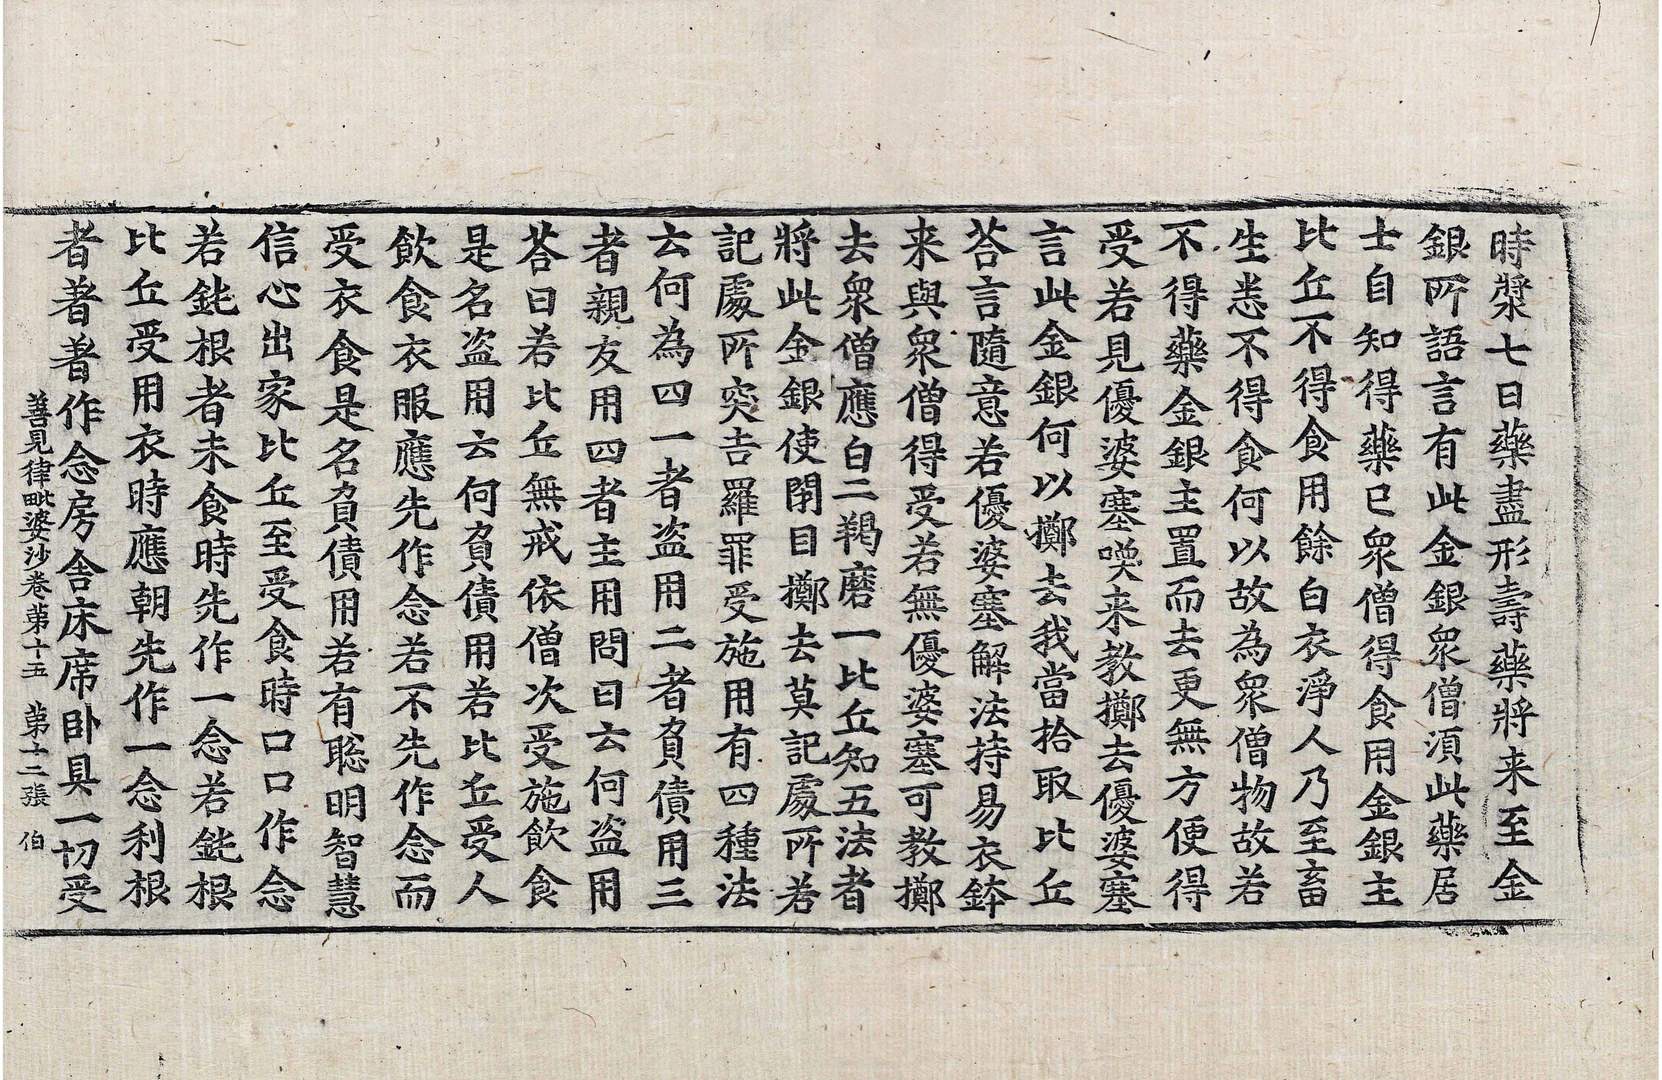 時漿七日藥盡形壽藥將来至金
銀所語言有此金銀衆僧湏此藥居
士自知得藥已衆僧得食用金銀主
比丘不得食用餘白衣淨人乃至畜
生悉不得食何以故為衆僧物故若
不得藥金銀主置而去更無方便得
受若見優婆塞喚来教擲去優婆塞
言此金銀何以擲去我當拾取比丘
荅言隨意若優婆塞解法持易衣鉢
来與衆僧得受若無優婆塞可教擲
去衆僧應白二羯磨一比丘知五法者
將此金銀使閉目擲去莫記處所若
記處所突吉羅罪受施用有四種法
云何為四一者盗用二者負債用三
者親友用四者主用問曰云何盗用
荅曰若比丘無戒依僧次受施飲食
是名盗用云何負債用若比丘受人
飲食衣服應先作念若不先作念而
受衣食是名負債用若有聡明智慧
信心出家比丘至受食時口口作念
若鈍根者未食時先作一念若鈍根
比丘受用衣時應朝先作一念利根
者著著作念房舍床席卧具一切受
善見律毗婆沙卷苐十五 苐十二張 伯